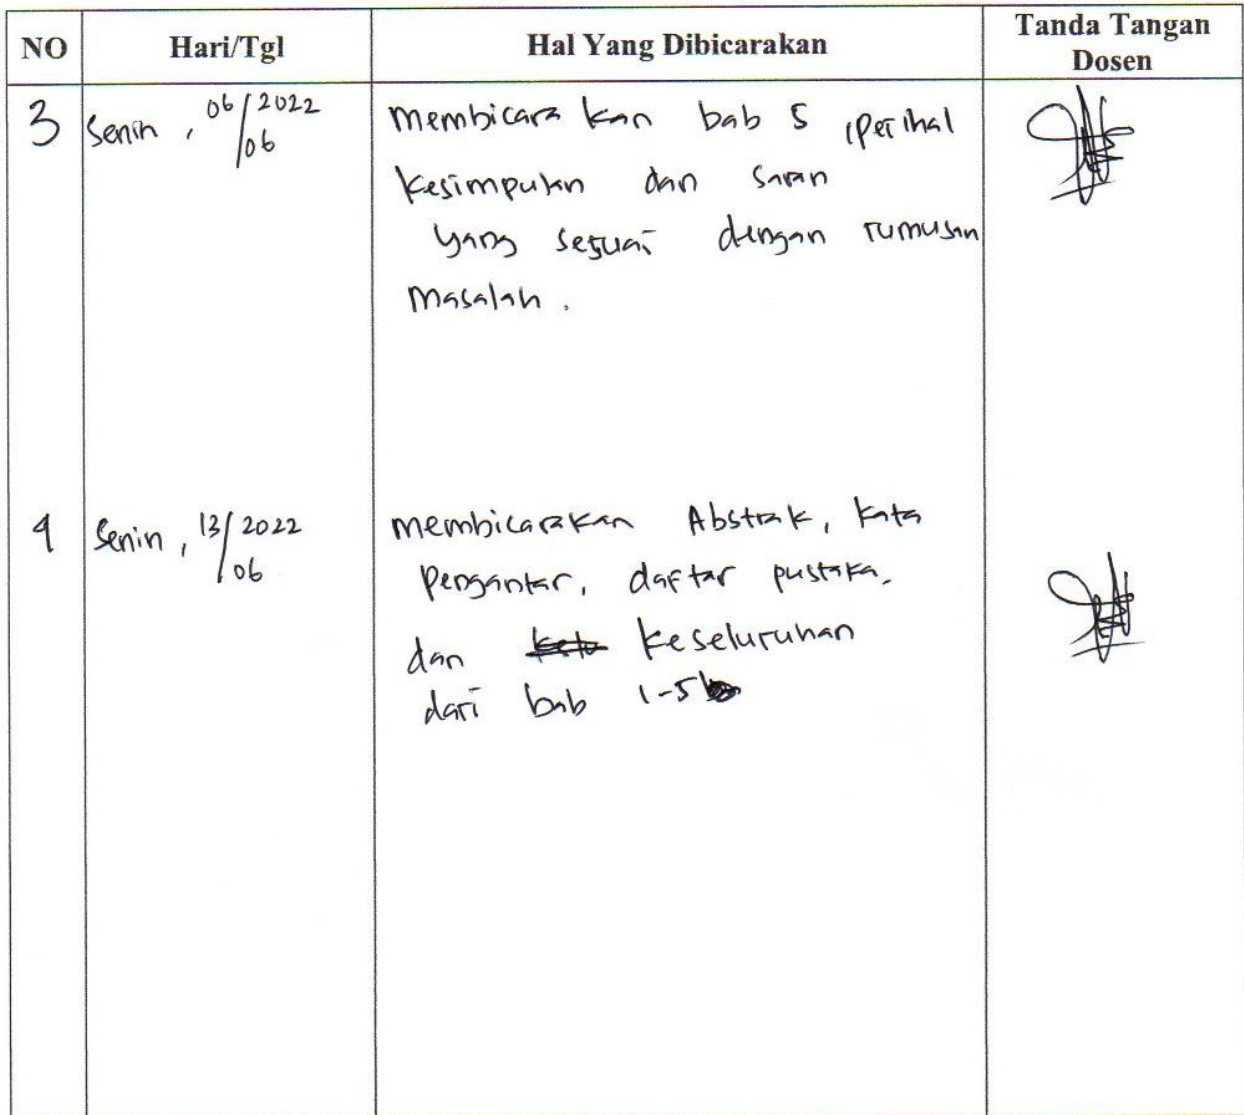 NO Hari/Tgl Hal Yang Dibicarakan Tanda Tangan
Dosen
3 Senin, 06/06 2022 membicarakan bab 5, perihal
kesimpulan dan saran
yang sesuai dengan rumusan
masalah.
4 Senin, 13/06 2022 membicarakan Abstrak, kata
pengantar, daftar pustaka,
dan keseluruhan
dari bab 1-5